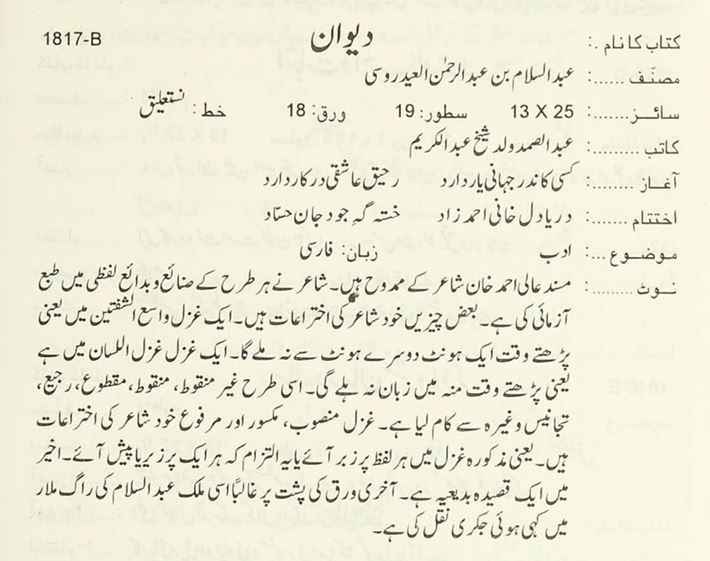 کتاب کا نام :. دیوان 1817-B
مصنّف ......: عبدالسلام بن عبدالرحمٰن العیدروسی
سائز.......: 13 X 25 سطور: 19 ورق: 18 خط: نستعلیق
کاتب ........: عبدالصمد ولد شیخ عبدالکریم
آغاز ........: کسی کاندر جہانی یار دارد رحیق عاشقی در کار دارد
اختتام .......: دریا دل خانی احمد زاد خستہ گہِ جود جان حسّاد
موضوع ...: ادب زبان: فارسی
نوٹ .........: مسند عالی احمد خان شاعر کے ممدوح ہیں۔ شاعر نے ہر طرح کے صنائع و بدائع لفظی میں طبع
آزمائی کی ہے۔ بعض چیزیں خود شاعر کی اختراعات ہیں۔ ایک غزل واسع الشفتین میں یعنی
پڑھتے وقت ایک ہونٹ دوسرے ہونٹ سے نہ ملے گا۔ ایک غزل غزل اللسان میں ہے
یعنی پڑھتے وقت منہ میں زبان نہ ہلے گی۔ اسی طرح غیر منقوط، منقوط، مقطوع، رجیع،
تجانیس وغیرہ سے کام لیا ہے۔ غزل منصوب، مکسور اور مرفوع خود شاعر کی اختراعات
ہیں۔ یعنی مذکورہ غزل میں ہر لفظ پر زبر آئے یا یہ التزام کہ ہر ایک پر زیر یا پیش آئے۔ اخیر
میں ایک قصیدہ بدیعیہ ہے۔ آخری ورق کی پشت پر غالبًا اسی ملک عبدالسلام کی راگ ملار
میں کہی ہوئی جکری نقل کی ہے۔